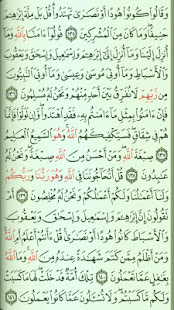 وَقَالُوا۟ كُونُوا۟ هُودًا أَوْ نَصَٰرَىٰ تَهْتَدُوا۟ قُلْ بَلْ مِلَّةَ إِبْرَٰهِۦمَ
حَنِيفًا وَمَا كَانَ مِنَ ٱلْمُشْرِكِينَ ١٣٥ قُولُوٓا۟ ءَامَنَّا بِٱللَّهِ وَمَآ
أُنزِلَ إِلَيْنَا وَمَآ أُنزِلَ إِلَىٰٓ إِبْرَٰهِۦمَ وَإِسْمَٰعِيلَ وَإِسْحَٰقَ وَيَعْقُوبَ
وَٱلْأَسْبَاطِ وَمَآ أُوتِىَ مُوسَىٰ وَعِيسَىٰ وَمَآ أُوتِىَ ٱلنَّبِيُّونَ
مِن رَّبِّهِمْ لَا نُفَرِّقُ بَيْنَ أَحَدٍ مِّنْهُمْ وَنَحْنُ لَهُۥ مُسْلِمُونَ ١٣٦
فَإِنْ ءَامَنُوا۟ بِمِثْلِ مَآ ءَامَنتُم بِهِۦ فَقَدِ ٱهْتَدَوا۟ وَّإِن تَوَلَّوْا۟ فَإِنَّمَا
هُمْ فِى شِقَاقٍ فَسَيَكْفِيكَهُمُ ٱللَّهُ وَهُوَ ٱلسَّمِيعُ ٱلْعَلِيمُ
١٣٧ صِبْغَةَ ٱللَّهِ وَمَنْ أَحْسَنُ مِنَ ٱللَّهِ صِبْغَةً وَنَحْنُ لَهُۥ
عَٰبِدُونَ ١٣٨ قُلْ أَتُحَآجُّونَنَا فِى ٱللَّهِ وَهُوَ رَبُّنَا وَرَبُّكُمْ
وَلَنَآ أَعْمَٰلُنَا وَلَكُمْ أَعْمَٰلُكُمْ وَنَحْنُ لَهُۥ مُخْلِصُونَ ١٣٩ أَمْ
تَقُولُونَ إِنَّ إِبْرَٰهِۦمَ وَإِسْمَٰعِيلَ وَإِسْحَٰقَ وَيَعْقُوبَ
وَٱلْأَسْبَاطَ كَانُوا۟ هُودًا أَوْ نَصَٰرَىٰ قُلْ ءَأَنتُمْ أَعْلَمُ أَمِ ٱللَّهُ
وَمَنْ أَظْلَمُ مِمَّن كَتَمَ شَهَٰدَةً عِندَهُۥ مِنَ ٱللَّهِ وَمَا ٱللَّهُ
بِغَٰفِلٍ عَمَّا تَعْمَلُونَ ١٤٠ تِلْكَ أُمَّةٌ قَدْ خَلَتْ لَهَا مَا كَسَبَتْ
وَلَكُم مَّا كَسَبْتُمْ وَلَا تُسْـَٔلُونَ عَمَّا كَانُوا۟ يَعْمَلُونَ ١٤١